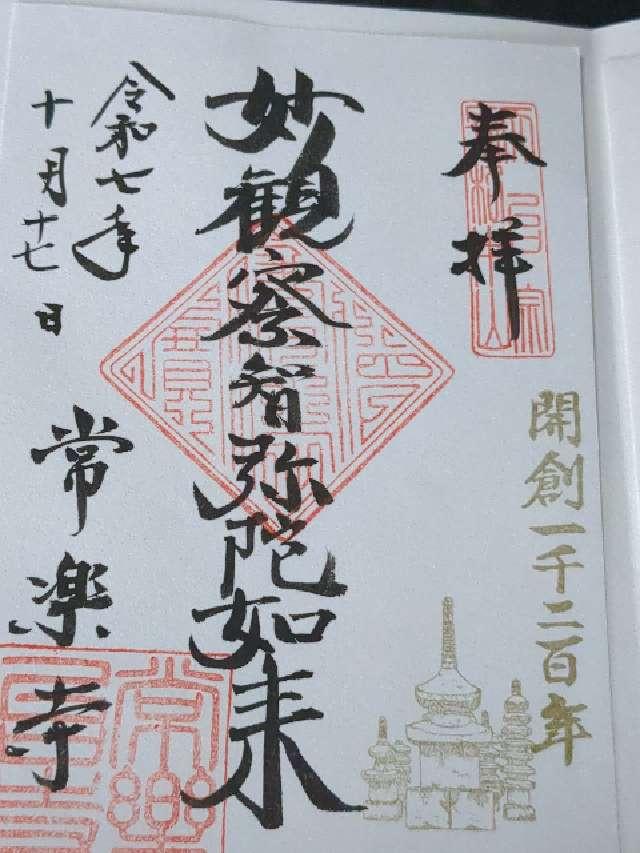 奉拝
開創一千二百年
妙観察智弥陀如来
令和七年
十月十七日
常楽寺